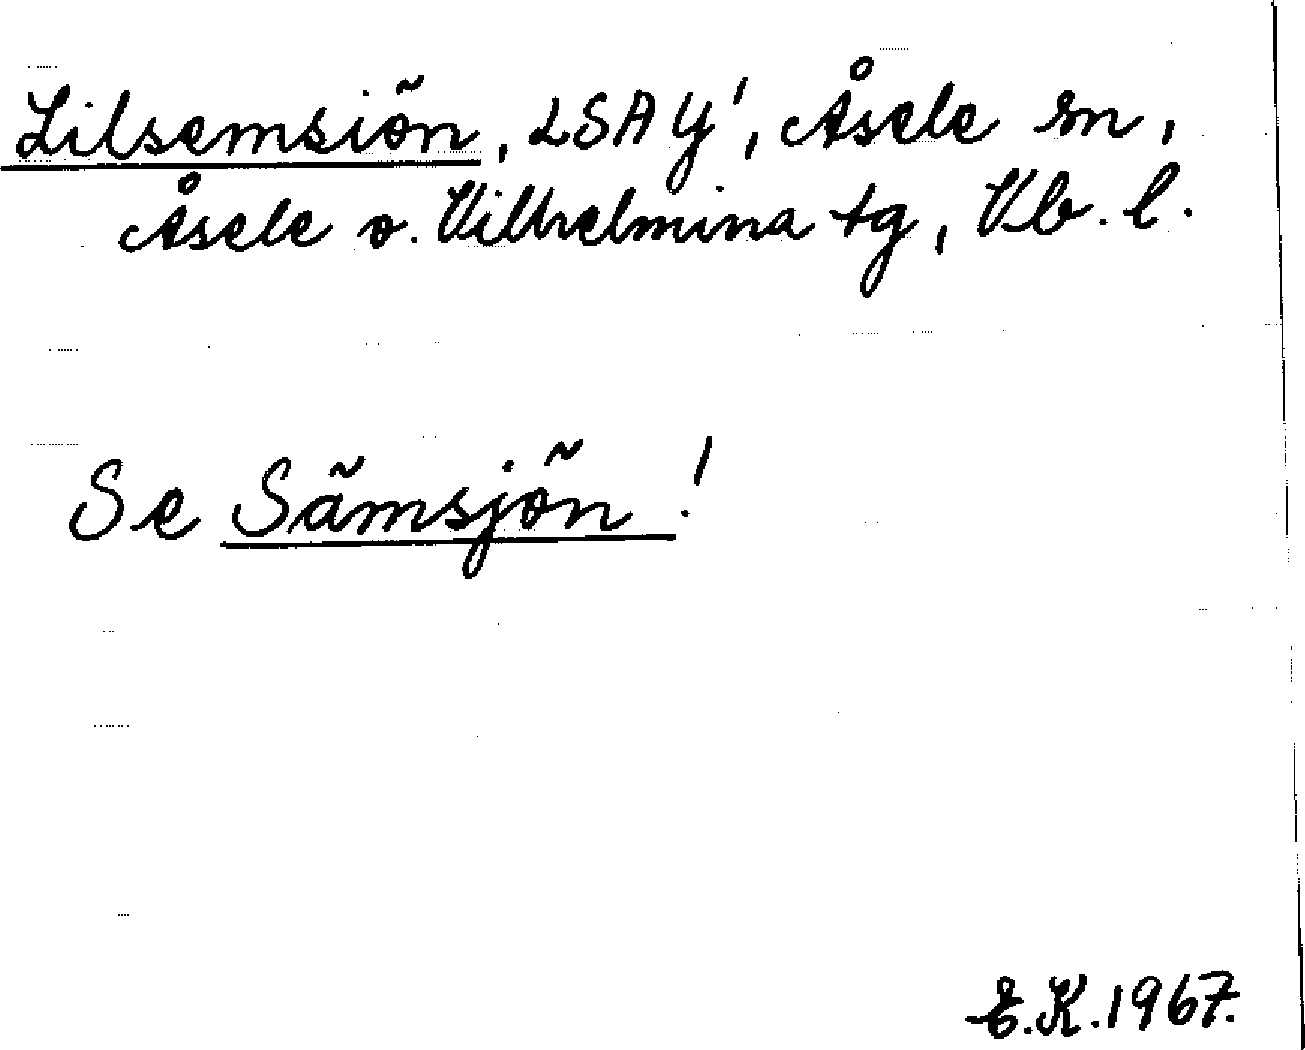 Lilsemsiön, LSA Y', Åsele sn,
Åsele o. Vilhelmina tg, Vb. l.
Se Sämsjön!
E.K.1967.